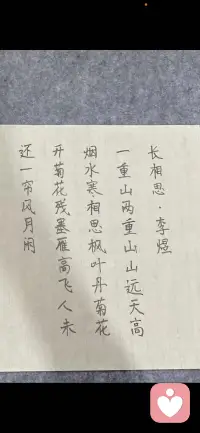 长相思·李煜
一重山两重山山远天高
烟水寒相思枫叶丹菊花
开菊花残塞雁高飞人未
还一帘风月闲